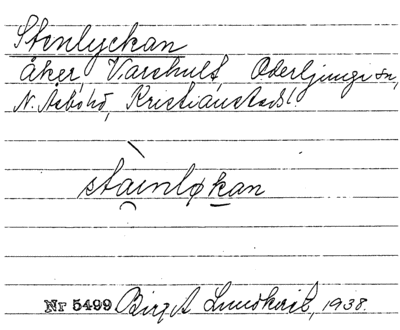 Stenlyckan
åker, Varshult, Oderljunga sn,
N. Åsbo hd, Kristianstads l.
stainløkan
Nr 5499 Birgit Lundkvist, 1938.